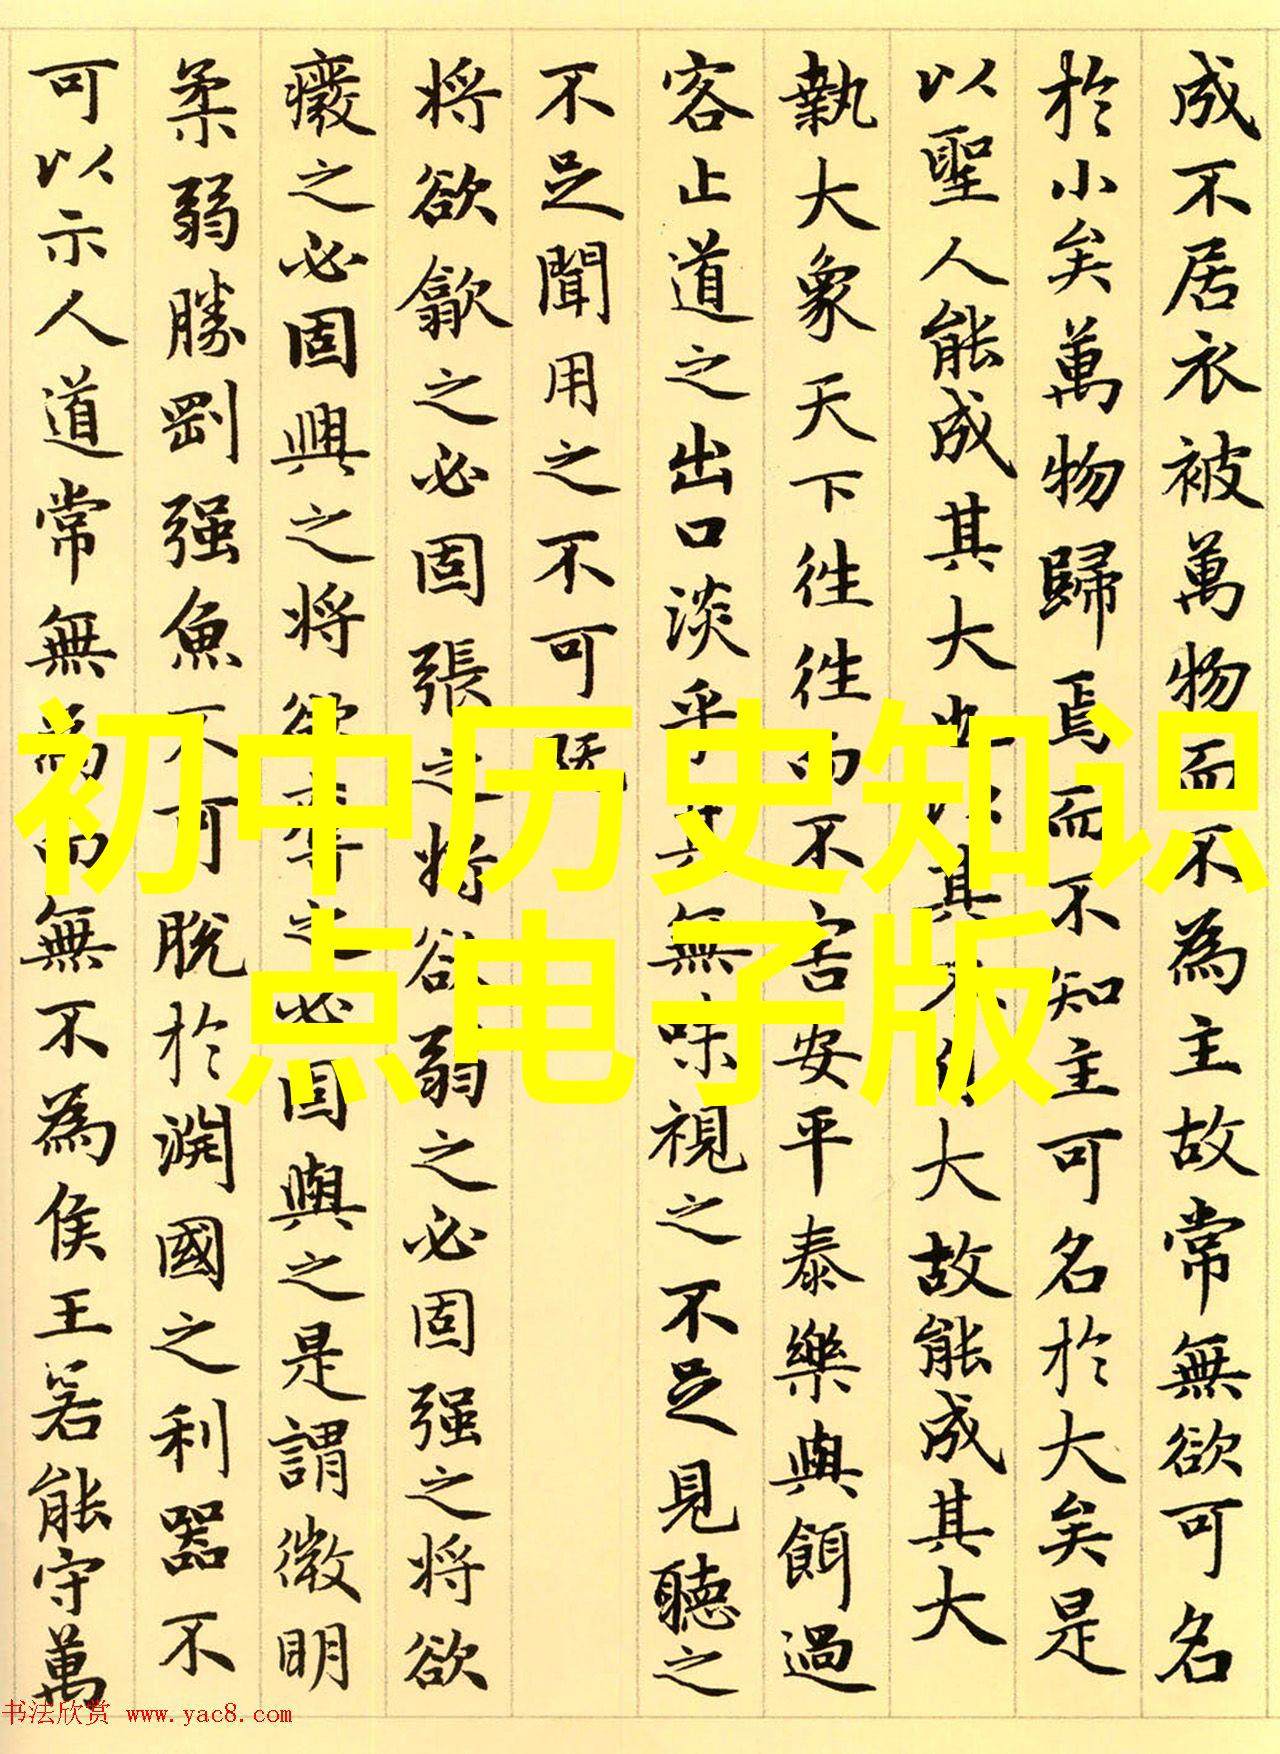 成不居衣被萬物而不為主故常無欲可名
於小矣萬物歸焉而不知主可名於大矣是
以聖人能成其大也以其不自大故能成其大
執大象天下往往而不害安平泰樂與餌過
客止道之出口淡乎其無味視之不足見聽之
不足聞用之不可既
将欲歙之必固張之将欲弱之必固强之将欲
廢之必固興之将欲奪之必固與之是謂微明
柔弱勝剛强魚不可脱於淵國之利器不
可以示人道常無為而無不為侯王若能守萬
初中历史知识
点电子版
书法欣赏 www.yac8.com